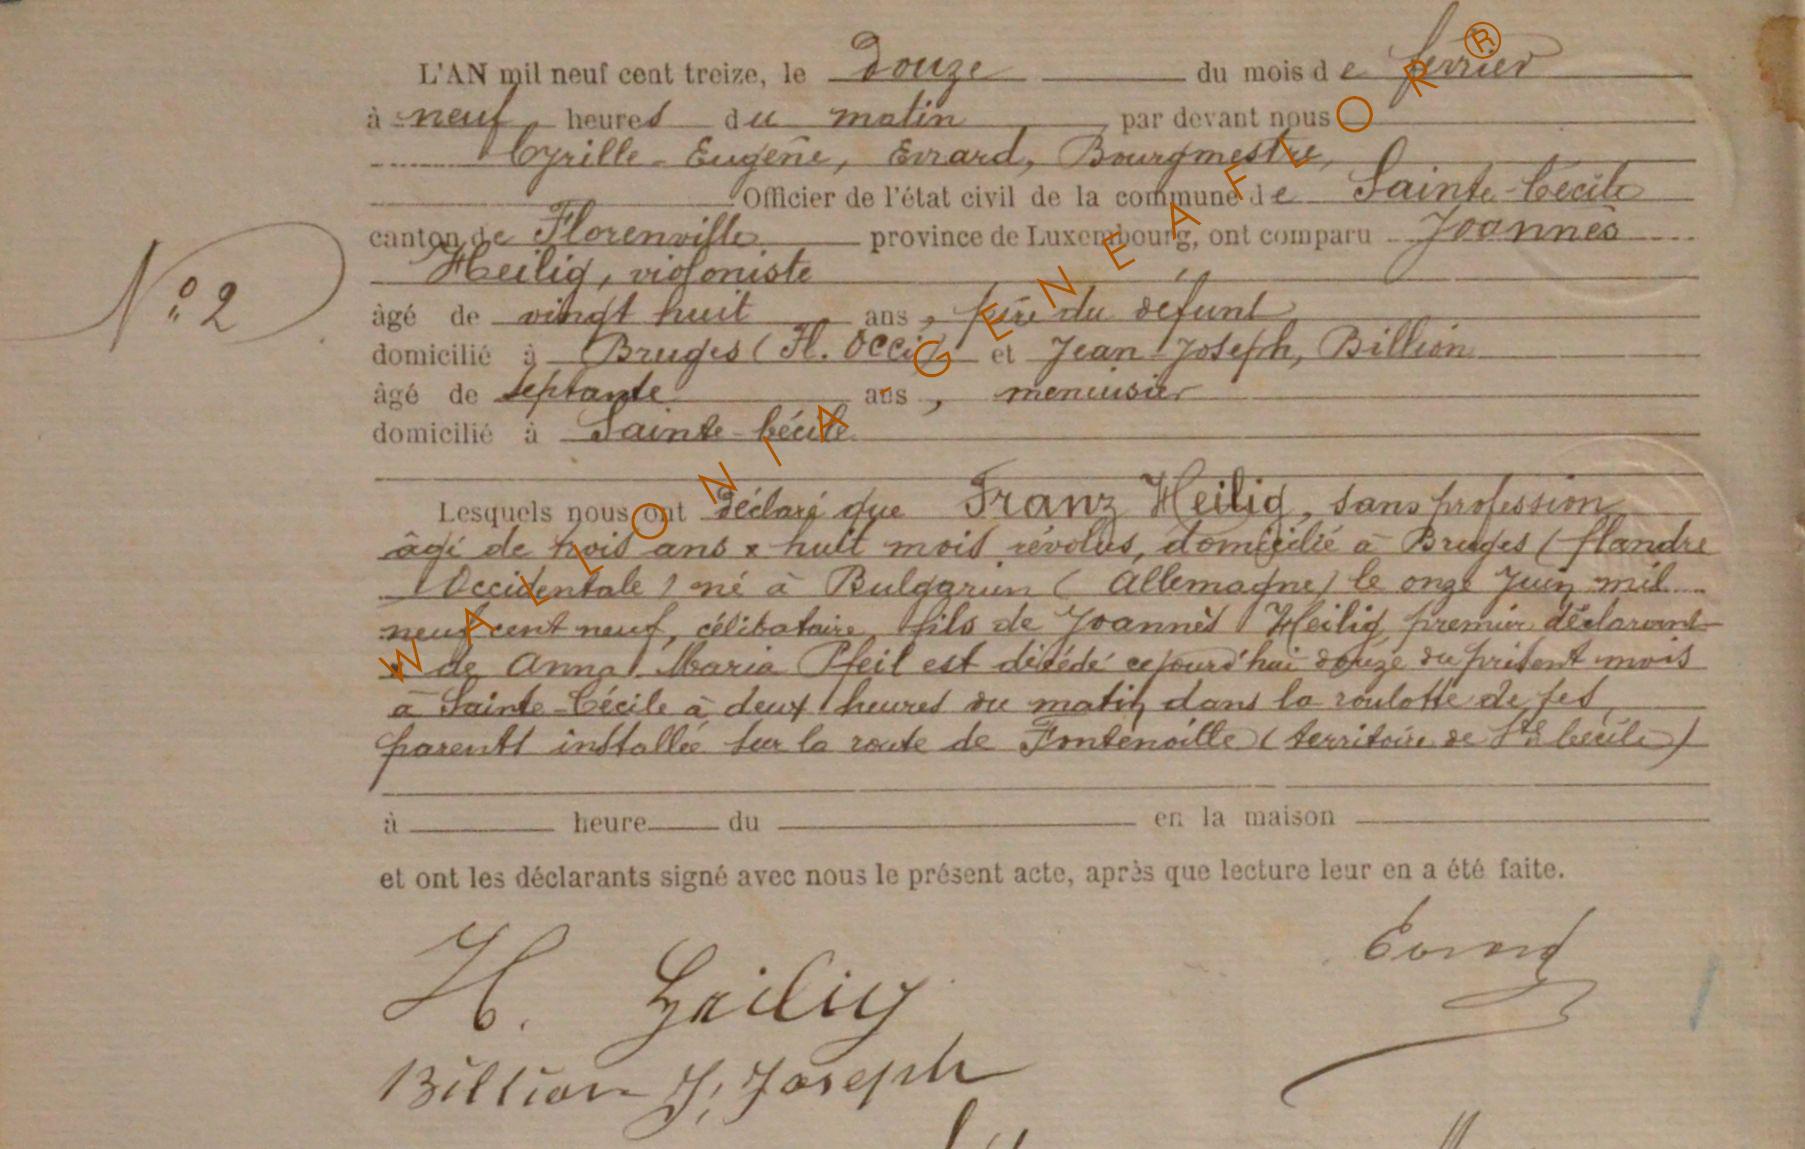 L'AN mil neuf cent treize, le douze du mois de février
à neuf heures du matin par devant nous
Cyrille-Eugène, Evrard, Bourgmestre,
Officier de l'état civil de la commune de Sainte-Cécile
canton de Florenville province de Luxembourg, ont comparu Joannès
Heilig, violoniste
N° 2
âgé de vingt huit ans, père du défunt
domicilié à Bruges (Fl. Occid) et Jean-Joseph, Billion
âgé de septante ans, menuisier
domicilié à Sainte-Cécile
Lesquels nous ont déclaré que Franz Heilig, sans profession
âgé de trois ans & huit mois révolus, domicilié à Bruges (flandre
Occidentale) né à (Allemagne) le onze Juin mil
neuf cent neuf, célibataire, fils de Joannès Heilig, premier déclarant
& de Anna Maria Pfeil est décédé cejourd'hui douze du présent mois
à Sainte-Cécile à deux heures du matin, dans la roulotte de ses
parents installée sur la route de Fontenoille (territoire de Ste Cécile)
à heure du en la maison
et ont les déclarants signé avec nous le présent acte, après que lecture leur en a été faite.
H. Heilig Evrard
Billion J, Joseph
WALLONIA-GENEAFLOR®